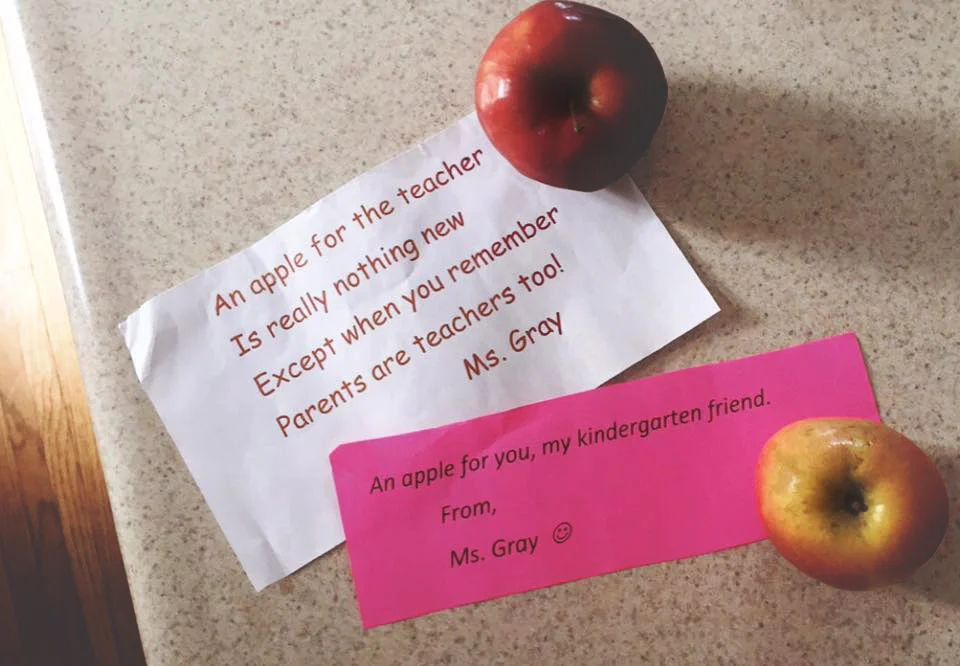 An apple for the teacher
Is really nothing new
Except when you remember
Parents are teachers too!
Ms. Gray
An apple for you, my kindergarten friend.
From,
Ms. Gray ☺